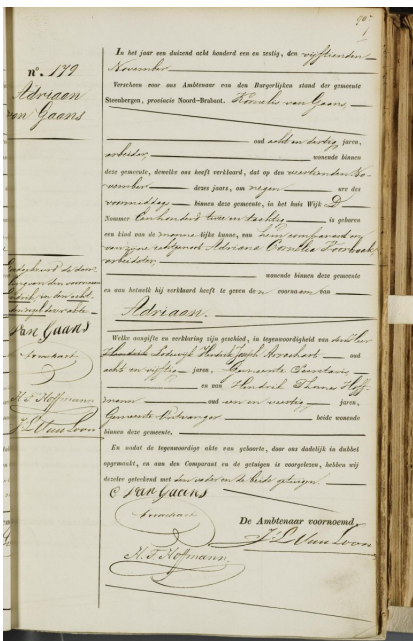 90
n°. 179
Adriaan
van Gaans
In het jaar een duizend acht honderd een en zestig, den vijftienden
November
Verscheen voor ons Ambtenaar van den Burgerlijken stand der gemeente
Steenbergen, provincie Noord-Brabant. Kornelis van Gaans,
oud acht en dertig jaren,
arbeider, wonende binnen
deze gemeente, dewelke ons heeft verklaard, dat op den veertienden No-
vember dezes jaars, om negen ure des
voormiddags binnen deze gemeente, in het huis Wijk D
Nommer Een honderd twee en tachtig is geboren
een kind van de mannelijke kunne, van hem comparant en
van zijne echtgenoot Adriana Cornelia
arbeidster,
wonende binnen deze gemeente
en aan hetwelk hij verklaard heeft te geven den voornaam van
Adriaan.
Welke aangifte en verklaring zijn geschied, in tegenwoordigheid van den Heer
Hendrik Lodewijk Joseph oud
acht en vijftig jaren, Gemeente Secretaris,
en van Hendrik Hoff-
mann oud een en veertig jaren,
Gemeente Ontvanger beide wonende
binnen deze gemeente.
En omdat de tegenwoordige akte van geboorte, door ons dadelijk in dubbel
opgemaakt, en aan den Comparant en de getuigen is voorgelezen, hebben wij
dezelve geteekend met den vader en de beide getuigen.
C van Gaans
De Ambtenaar voornoemd
J. L. Van Loon
H. T. Hoffmann
van Gaans
H. T. Hoffmann
J. L. Van Loon